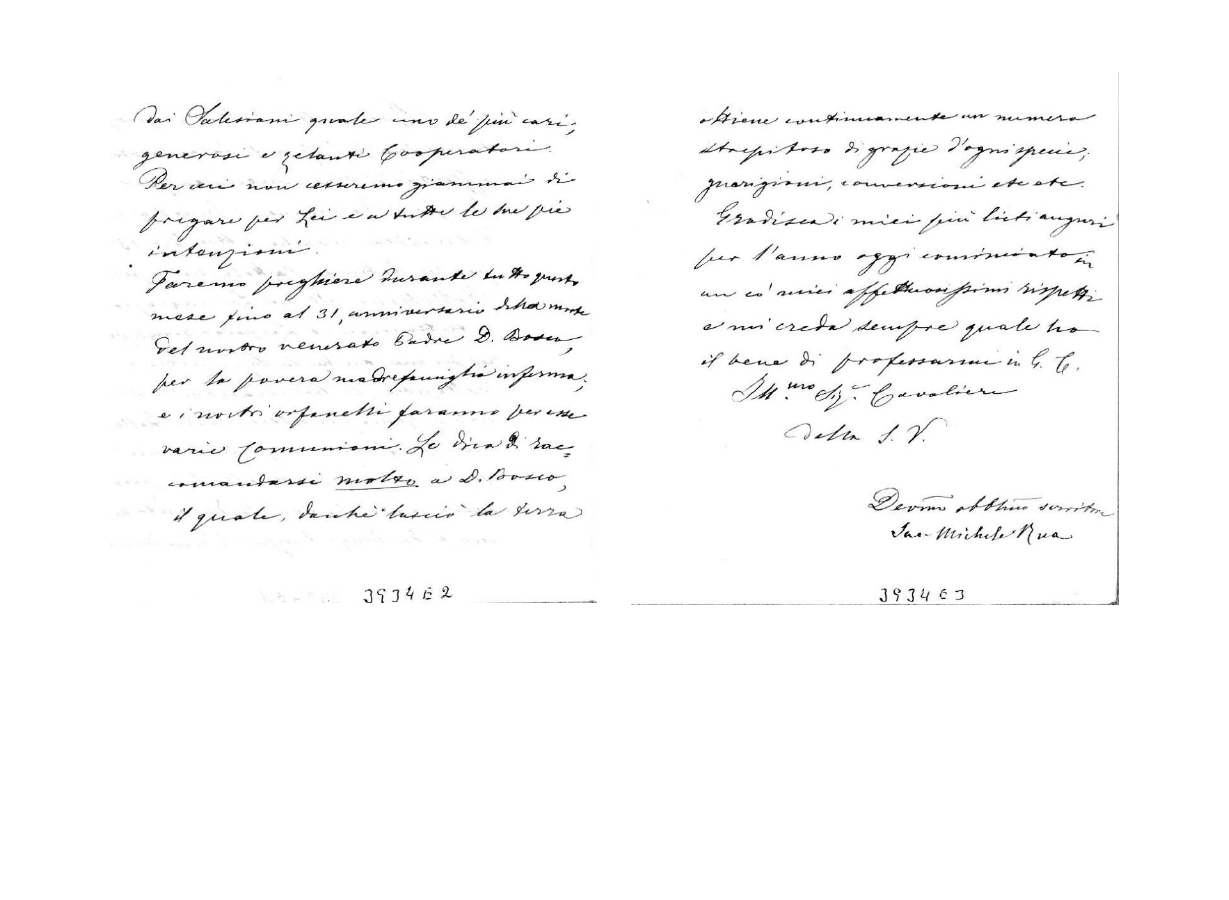 dai Salesiani quale uno de' più cari,
generosi e zelanti Cooperatori.
Per cui non cesseremo giammai di
pregare per Lei e a tutte le sue pie
intenzioni.
Faremo preghiere durante tutto questo
mese fino al 31, anniversario della morte
del nostro venerato Padre D. Bosco,
per la povera madre famiglia inferma;
e i nostri orfanelli faranno per essa
varie Comunioni. Le dica di rac=
comandarsi molto a D. Bosco,
il quale, dacchè lasciò la terra
3934 E 2
ottiene continuamente un numero
strepitoso di grazie d'ogni specie;
guarigioni, conversioni etc etc.
Gradisca i miei più lieti auguri
per l'anno oggi cominciato in
un co' miei affettuosissimi rispetti
e mi creda sempre quale ho
il bene di professarmi in G. C.
Ill.mo Sig.r Cavaliere
Della S. V.
Devmo obblmo servitore
Sac. Michele Rua
3934 E 3